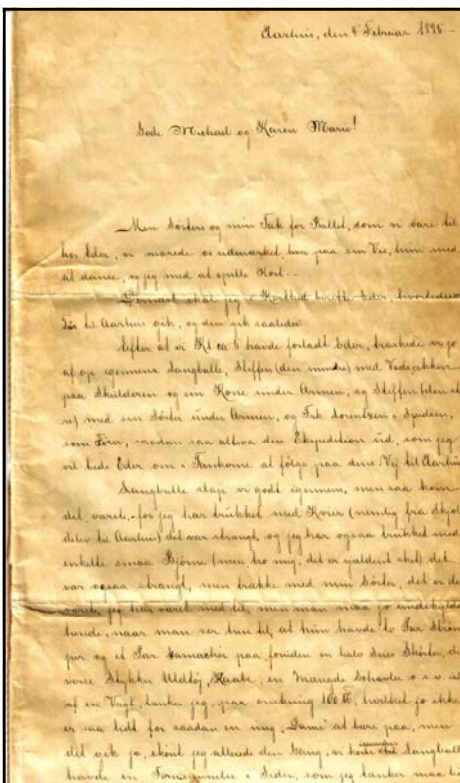 Aarhus, den 4' Februar 1895
Gode Michael og Karen Marie!
Min Søsters og min Tak for Ballet, som vi vare til
hos Eder, vi morede os udmærket hun paa sin Vis, hun med
at danse, og jeg med at spille Kort.
skal jeg i Korthed berette Eder, hvorledes
til Aarhus gik, og den gik saaledes
Efter at vi Kl ca 5 havde forladt Eder, traskede vi jo
af op igennem Langballe, Steffen (den mindre) med Vadsækken
paa Skulderen og sin Kone under Armen, og Steffen (den stø
re) med sin Søster under Armen, og Frk Sorentzen i Spidsen,
som saadan saa altsaa den Ekspedition ud, som jeg
vil bede Eder om i Tankerne at følge paa dens Vej til Aarhus
Langballe slap vi godt igennem, men saa kom
det værste, for jeg har trukket med Kvier (nemlig fra Skjol
delev til Aarhus) det var strengt, og jeg har ogsaa trukket med
enkelte smaa Bjørne (men tro mig, det er sjældent sket) det
var ogsaa strengt, men trække med min Søster, det er det
værste, jeg har været med til, men man maa jo undskylde
hende, naar man ser hen til, at hun havde to Par Strøm
per og et Par Gamacher paa foruden en halv Snes Skørter, di
verse Stykker Uldtøj, Kaabe, en Mængde Schavler o.s.v. alt
af en Vægt, tænker jeg, paa omkring 100 ℔, hvilket jo ikke
er saa lidt for saadan en ung "Dame" at bære paa, men
det gik jo, skønt jeg allerede den Gang, vi kom Langballe
havde en Fornemmelse i Siden, som jeg tænker maa